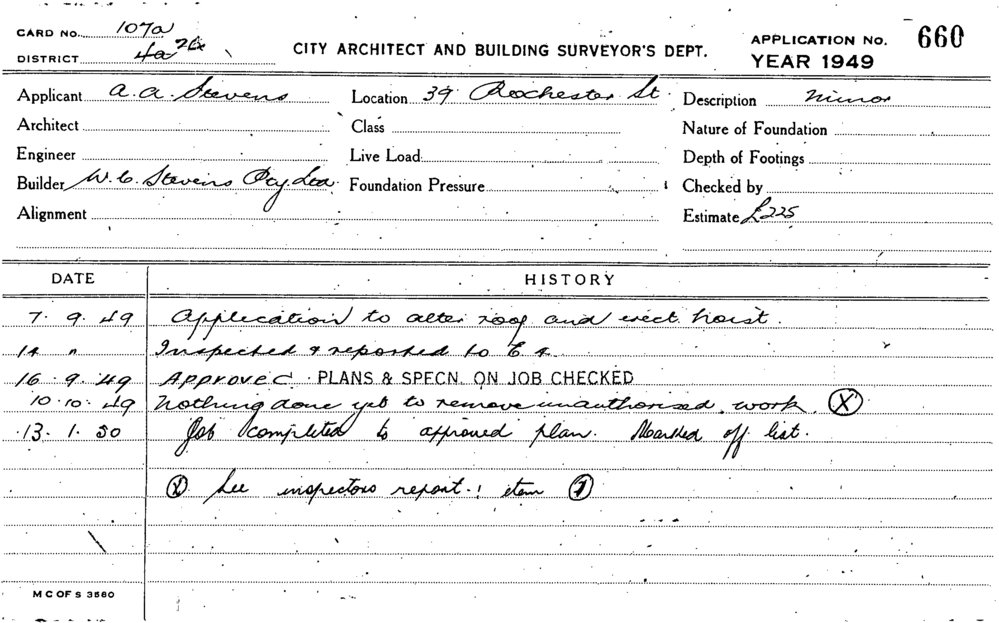 CARD No. 107a
DISTRICT 4a
CITY ARCHITECT AND BUILDING SURVEYOR'S DEPT.
APPLICATION No. 660
YEAR 1949
Applicant A. A. Stevens Location 39 Rochester St. Description Minor
Architect Class Nature of Foundation
Engineer Live Load Depth of Footings
Builder W. C. Stevens Pty. Ltd. Foundation Pressure Checked by
Alignment Estimate £225
DATE HISTORY
7. 9. 49 Application to alter roof and erect hoist.
14 " Inspected & reported to
16. 9. 49 APPROVED. PLANS & SPECN. ON JOB CHECKED
10. 10. 49 Nothing done yet to remove unauthorised work. (X)
13. 1. 50 Job completed to approved plan. Marked off list.
(X) See inspectors report: item
M C OF S 3580